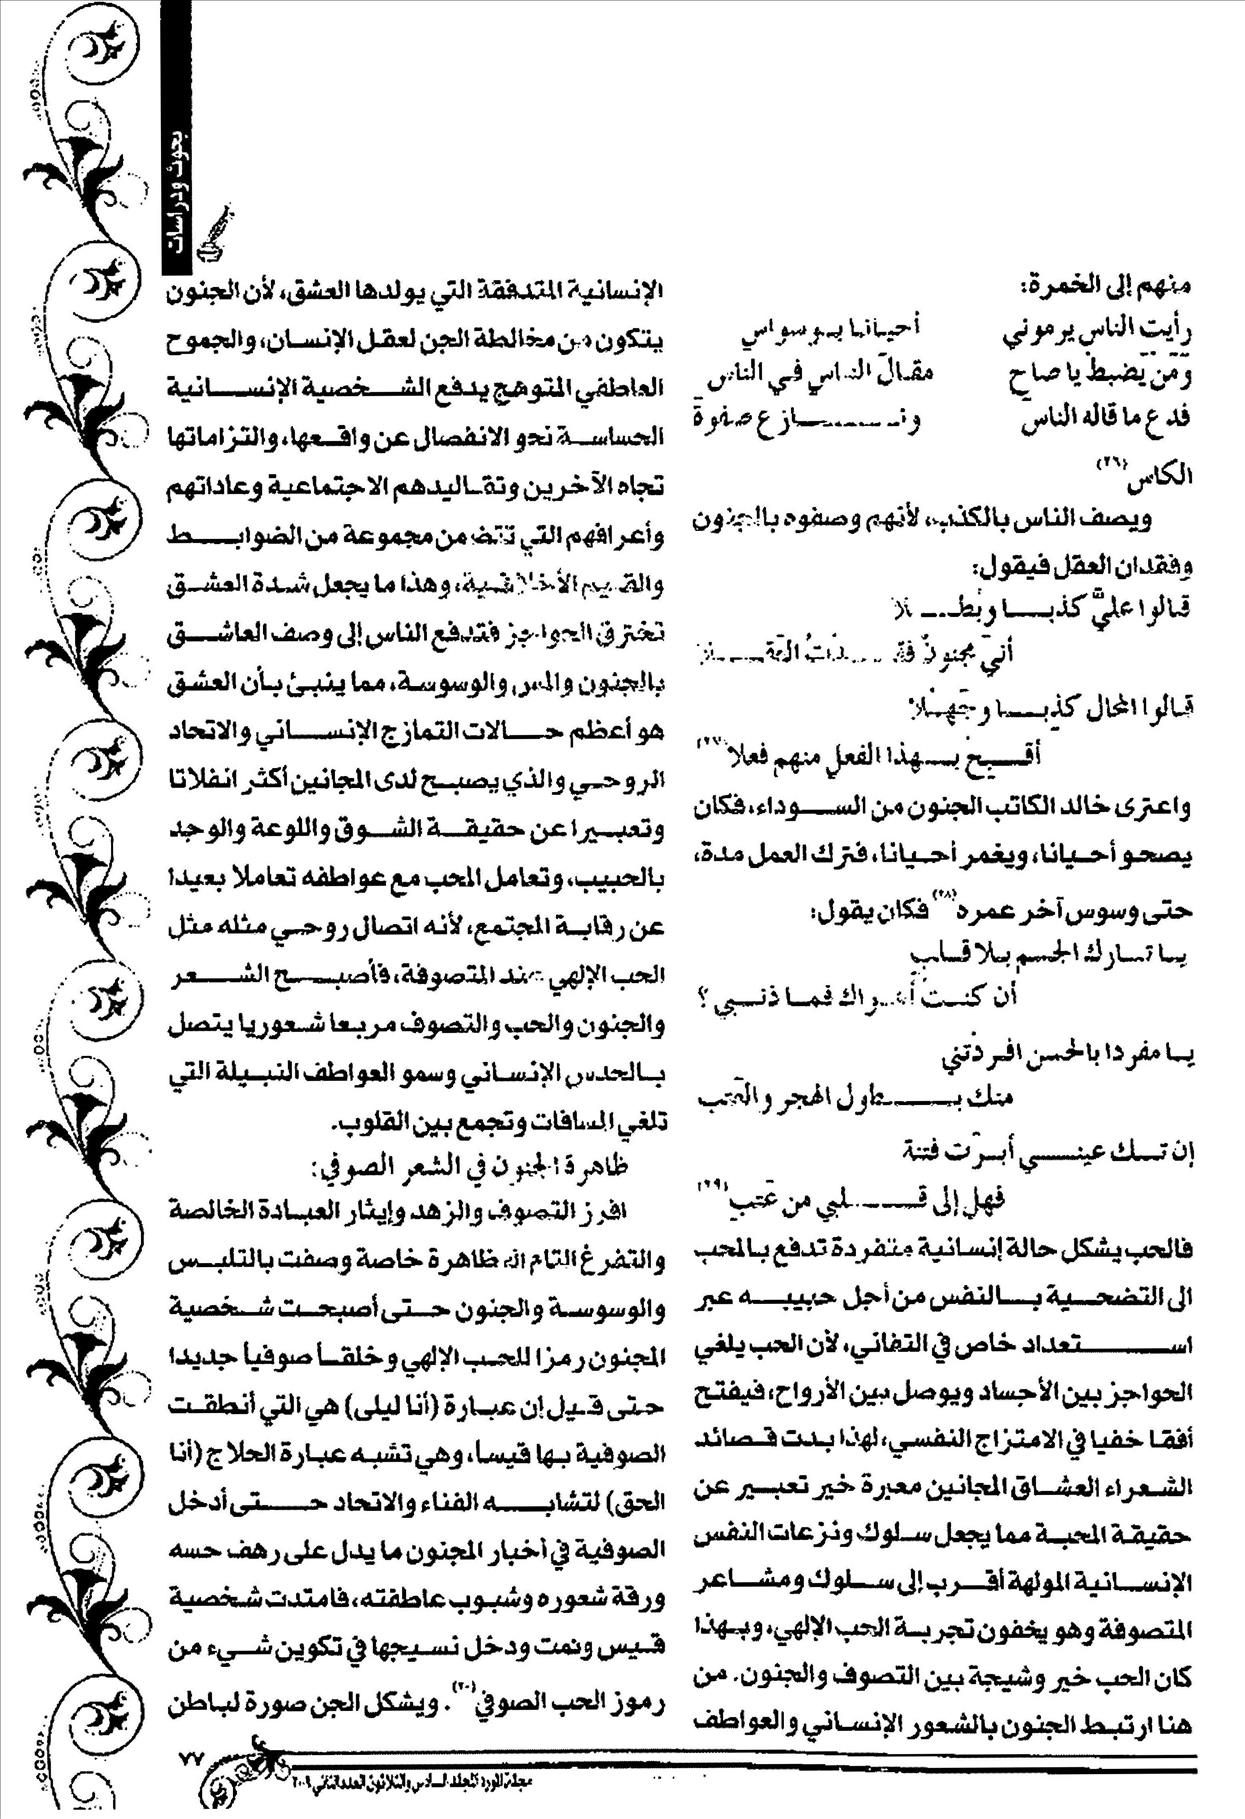 بحوث ودراسات
منهم إلى الخمرة:
رأيت الناس يرموني أحيانا بوسواس
ومن يضبط يا صاح مقال الناس في الناس
فدع ما قاله الناس ونازع صفوة
الكاس (٢٦)
ويصف الناس بالكذب، لأنهم وصفوه بالجنون
وفقدان العقل فيقول:
قالوا عليّ كذبا وبطلا
أني مجنون فقدت العقلا
قالوا المحال كذبا وجهلا
أقبح بهذا الفعل منهم فعلا (٢٧)
واعترى خالد الكاتب الجنون من السوداء، فكان
يصحو أحيانا، ويغمر أحيانا، فترك العمل مدة،
حتى وسوس آخر عمره (٢٨) فكان يقول:
يا تارك الجسم بلا قلب
أن كنت أهواك فما ذنبي ؟
يا مفردا بالحسن افردتني
منك بطول الهجر والعتب
إن تك عيني أبرت فتنة
فهل إلى قلبي من عتب (٢٩)
فالحب يشكل حالة إنسانية متفردة تدفع بالمحب
الى التضحية بالنفس من أجل حبيبه عبر
استعداد خاص في التفاني، لأن الحب يلغي
الحواجز بين الأجساد ويوصل بين الأرواح، فيفتح
أفقا خفيا في الامتزاج النفسي، لهذا بدت قصائد
الشعراء العشاق المجانين معبرة خير تعبير عن
حقيقة المحبة مما يجعل سلوك ونزعات النفس
الإنسانية المولهة أقرب إلى سلوك ومشاعر
المتصوفة وهو يخفون تجربة الحب الإلهي، وبهذا
كان الحب خير وشيجة بين التصوف والجنون. من
هنا ارتبط الجنون بالشعور الإنساني والعواطف
الإنسانية المتدفقة التي يولدها العشق، لأن الجنون
يتكون من مخالطة الجن لعقل الإنسان، والجموح
العاطفي المتوهج يدفع الشخصية الإنسانية
الحساسة نحو الانفصال عن واقعها، والتزاماتها
تجاه الآخرين وتقاليدهم الاجتماعية وعاداتهم
وأعرافهم التي تتضمن مجموعة من الضوابط
والقيم الأخلاقية، وهذا ما يجعل شدة العشق
تخترق الحواجز فتدفع الناس إلى وصف العاشق
بالجنون والمس والوسوسة، مما ينبئ بأن العشق
هو أعظم حالات التمازج الإنساني والاتحاد
الروحي والذي يصبح لدى المجانين أكثر انفلاتا
وتعبيرا عن حقيقة الشوق واللوعة والوجد
بالحبيب، وتعامل المحب مع عواطفه تعاملا بعيدا
عن رقابة المجتمع، لأنه اتصال روحي مثله مثل
الحب الإلهي عند المتصوفة، فأصبح الشعر
والجنون والحب والتصوف مربعا شعوريا يتصل
بالحدس الإنساني وسمو العواطف النبيلة التي
تلغي المسافات وتجمع بين القلوب.
ظاهرة الجنون في الشعر الصوفي:
افرز التصوف والزهد وإيثار العبادة الخالصة
والتفرغ التام الله ظاهرة خاصة وصفت بالتلبس
والوسوسة والجنون حتى أصبحت شخصية
المجنون رمزا للحب الإلهي وخلقا صوفيا جديدا
حتى قيل إن عبارة (أنا ليلى) هي التي أنطقت
الصوفية بها قيسا، وهي تشبه عبارة الحلاج (أنا
الحق) لتشابه الفناء والاتحاد حتى أدخل
الصوفية في أخبار المجنون ما يدل على رهف حسه
ورقة شعوره وشبوب عاطفته، فامتدت شخصية
قيس ونمت ودخل نسيجها في تكوين شيء من
رموز الحب الصوفي (٣٠). ويشكل الجن صورة لباطن
٧٧
مجلة المورد المجلد السادس والثلاثون العدد الثاني ٢٠٠٩